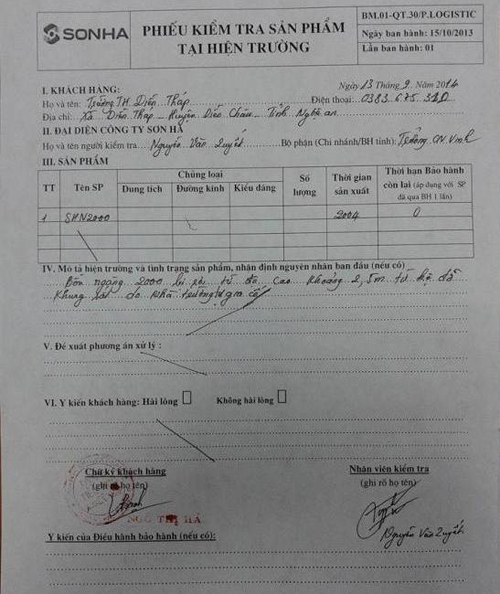 SONHA
PHIẾU KIỂM TRA SẢN PHẨM
TẠI HIỆN TRƯỜNG
BM.01-QT.30/P.LOGISTIC
Ngày ban hành: 15/10/2013
Lần ban hành: 01
I. KHÁCH HÀNG: Ngày 13 Tháng 9 Năm 2014
Họ và tên: Trường TH Diễn Tháp Điện thoại: 0383 675 310
Địa chỉ: Xã Diễn Tháp - Huyện Diễn Châu - Tỉnh Nghệ an
II. ĐẠI DIỆN CÔNG TY SƠN HÀ
Họ và tên người kiểm tra: Nguyễn Văn Quyết Bộ phận (Chi nhánh/BH tỉnh): Trưởng CN Vinh
III. SẢN PHẨM
TT Tên SP Chủng loại Số lượng Thời gian sản xuất Thời hạn Bảo hành còn lại (áp dụng với SP đã qua BH 1 lần)
Dung tích Đường kính Kiểu dáng
1 SHN2000 2004 0
IV. Mô tả hiện trường và tình trạng sản phẩm, nhận định nguyên nhân ban đầu (nếu có)
Bồn ngang 2000 bị rơi từ độ cao khoảng 2,5m từ bệ đỡ
Khung sắt do nhà trường tự gia cố
V. Đề xuất phương án xử lý :
VI. Ý kiến khách hàng: Hài lòng Không hài lòng
Chữ ký khách hàng Nhân viên kiểm tra
(ghi rõ họ tên) (ghi rõ họ tên)
NGÔ THỊ HÀ
Nguyễn Văn Quyết
Ý kiến của Điều hành bảo hành (nếu có):